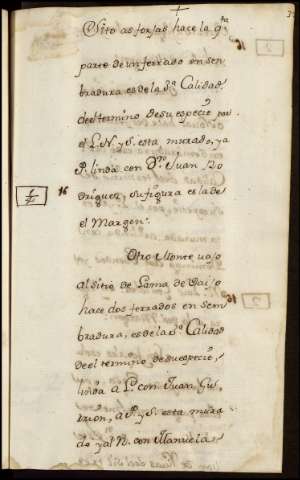 Sito as forjas hace la q.ta
parte de un ferrado en sem
bradura es de la 3.a Calidad,
del termino de su especie, por
el L. N. y S. esta murado, y a
P. linda con D.n Juan Ro
driguez y su figura es la de
el Margen.
16
Otro Monte
al sitio de Lama de
hace dos ferrados en sem
bradura, es de la 3.a Calidad
de el termino de su especie,
linda a L. con Juan
a P. y S. esta mura
do y al N. con Manuela